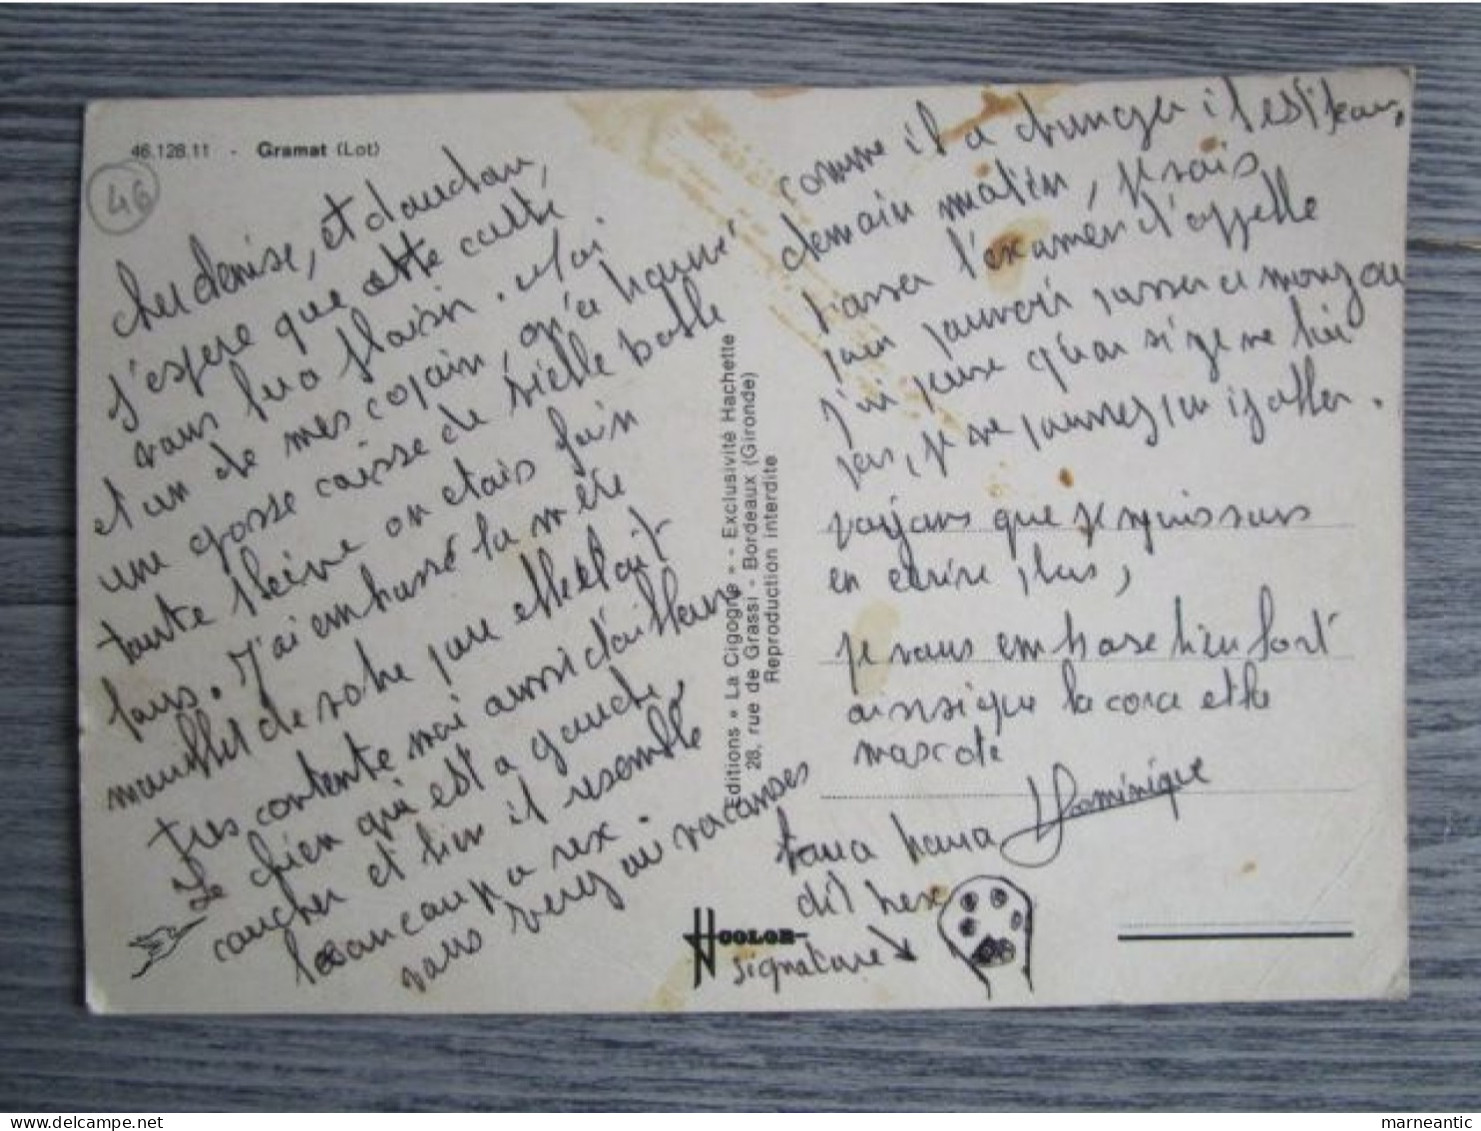 46.128.11 - Gramat (Lot)
46
cher denise, et doudou,
j'espere que cette carte
vous fera plaisir. Moi
et un de mes copain, on a trouvé
une grosse caisse de vielle boble
toute pleine on etais fain
fous. J'ai embrassé la mère
mouflet de votre par elle etait
tres contente moi aussi d'ailleurs
Le chien qui est a gauche,
coucher et bien il resemble
beaucoup a rex.
vous verez au vacanses
comme il a changer il est beau,
demain matin, je vais
passer l'examen d'appelle
pour pouvoir passer a monjou
j'ai peur qu'on si je ne l'ai
pas, je ne pourrez pas iz aller.
voyons que je puis vous
en ecrire plus,
je vous embrase bien fort
ainsi que la cora et la
mascote
Dominique
dit rex
signature
Editions « La Cigogne » - Exclusivité Hachette
28, rue de Grassi - Bordeaux (Gironde)
Reproduction interdite
COLOR
marneantic